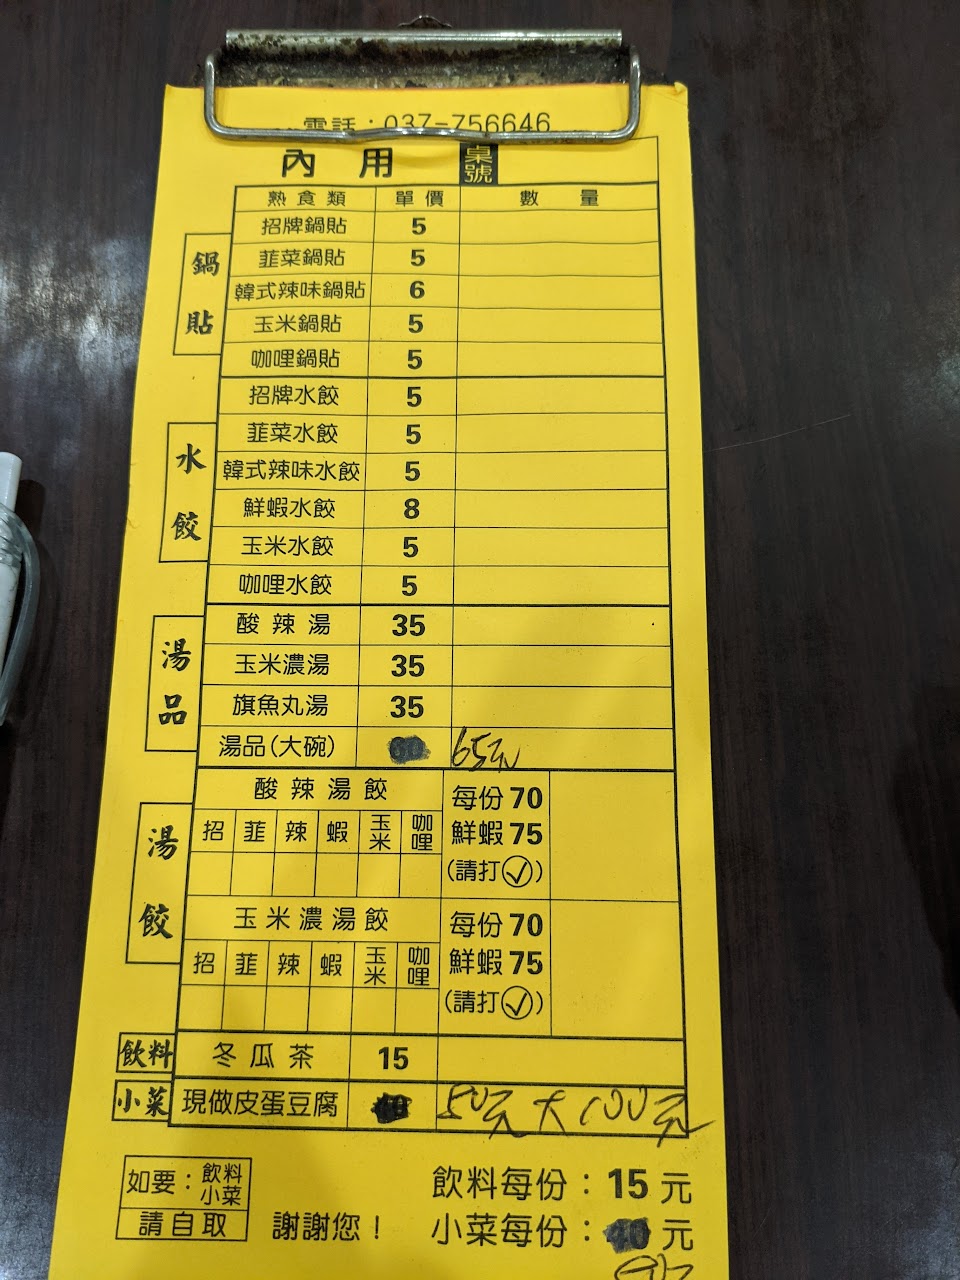 電話：037-756646
內用 桌號
熟食類 單價 數量
鍋貼
招牌鍋貼 5
韮菜鍋貼 5
韓式辣味鍋貼 6
玉米鍋貼 5
咖哩鍋貼 5
水餃
招牌水餃 5
韮菜水餃 5
韓式辣味水餃 5
鮮蝦水餃 8
玉米水餃 5
咖哩水餃 5
湯品
酸辣湯 35
玉米濃湯 35
旗魚丸湯 35
湯品(大碗) 65元
湯餃
酸辣湯餃
招 韮 辣 蝦 玉米 咖哩
每份70
鮮蝦75
(請打✓)
玉米濃湯餃
招 韮 辣 蝦 玉米 咖哩
每份70
鮮蝦75
(請打✓)
飲料 冬瓜茶 15
小菜 現做皮蛋豆腐 50元 大100元
如要：飲料小菜
請自取
謝謝您！
飲料每份：15元
小菜每份：40元